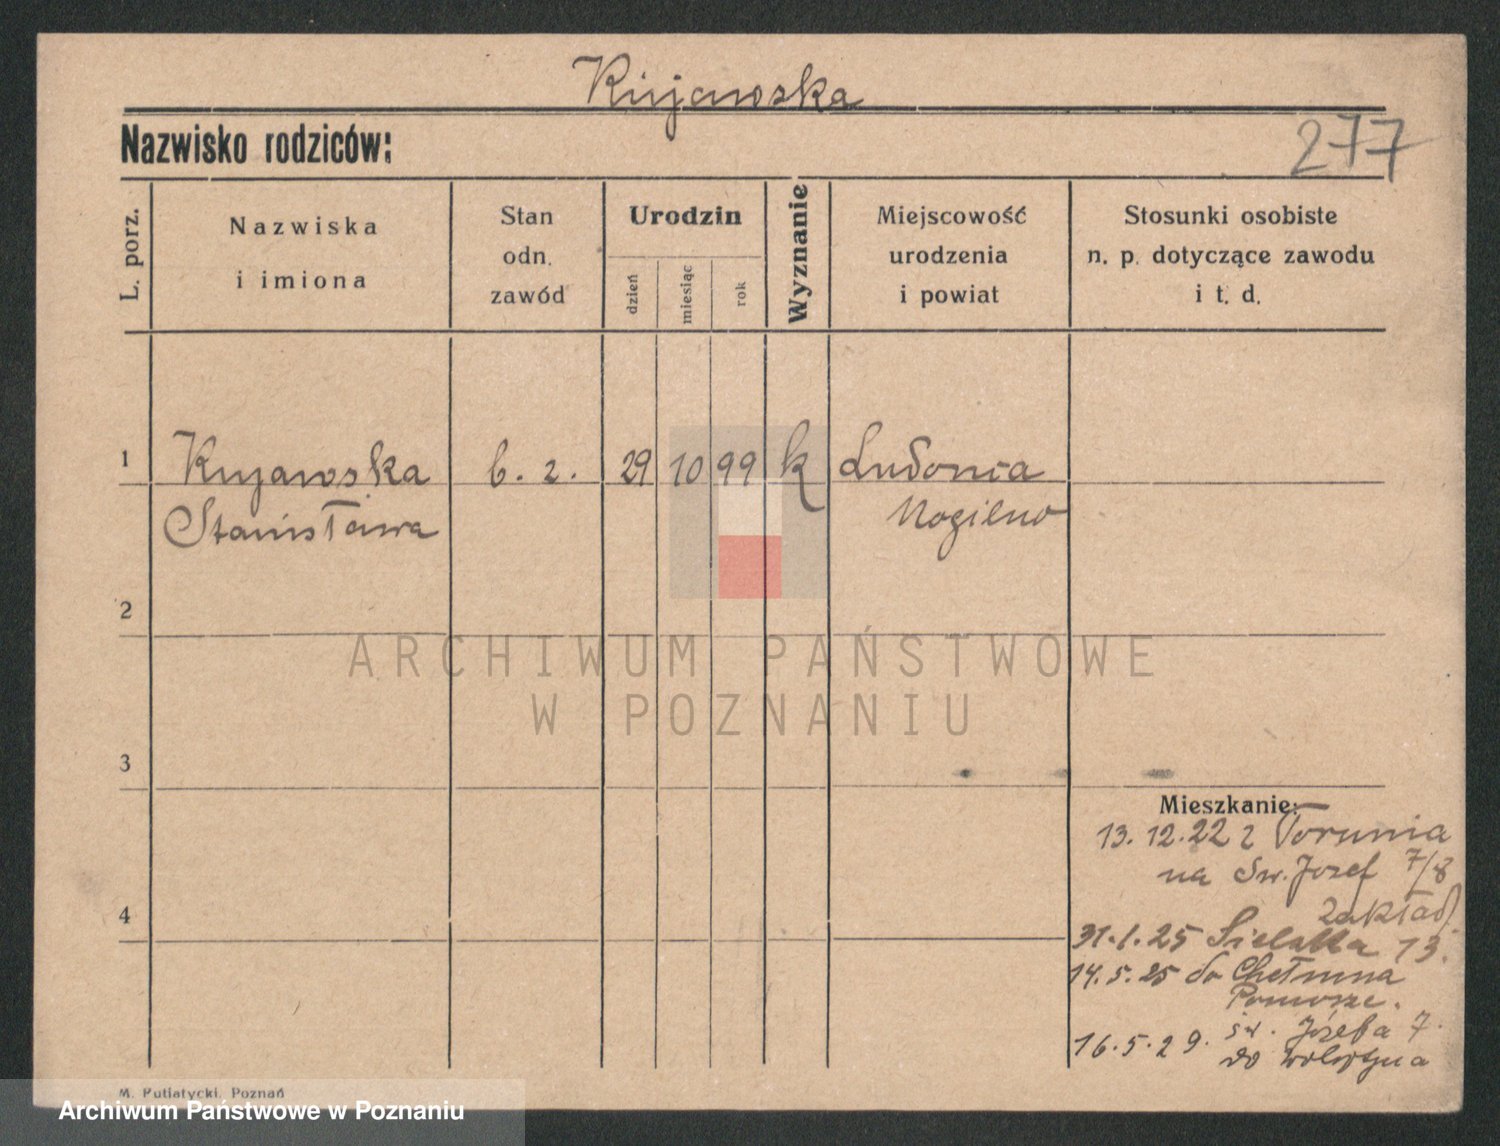 Kujawska
277
Nazwisko rodziców:
L. porz.
Nazwiska
i imiona
Stan
odn.
zawód
Urodzin
dzień
miesiąc
rok
Wyznanie
Miejscowość
urodzenia
i powiat
Stosunki osobiste
n. p. dotyczące zawodu
i t. d.
1 Kujawska b. z. 29 10 99 k
Stanisława Mogilno
2
ARCHIWUM PAŃSTWOWE
W POZNANIU
3
Mieszkanie:
13.12.22 z Torunia
na Św. Józef 7/8
zakład
4
31.1.25 13.
14.5.25 do Chełmna
Pomorze.
16.5.29. św. Józefa 7.
do
M. Putiatycki, Poznań
Archiwum Państwowe w Poznaniu